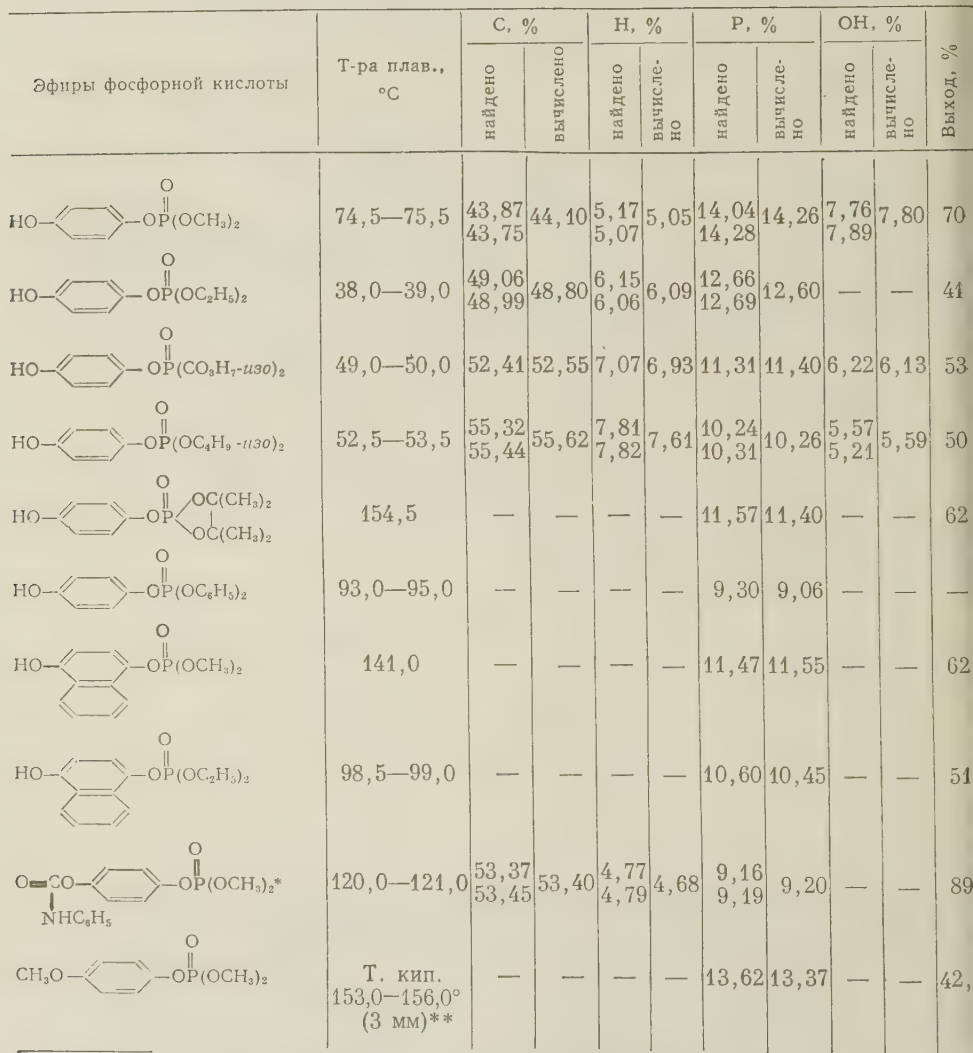 Эфиры фосфорной кислоты | Т-ра плав., °C | C, % найдено | C, % вычислено | H, % найдено | H, % вычисле-но | P, % найдено | P, % вычисле-но | OH, % найдено | OH, % вычисле-но | Выход, %
HO— —OP(O)(OCH₃)₂ | 74,5—75,5 | 43,87 43,75 | 44,10 | 5,17 5,07 | 5,05 | 14,04 14,28 | 14,26 | 7,76 7,89 | 7,80 | 70
HO— —OP(O)(OC₂H₅)₂ | 38,0—39,0 | 49,06 48,99 | 48,80 | 6,15 6,06 | 6,09 | 12,66 12,69 | 12,60 | — | — | 41
HO— —OP(O)(CO₃H₇-изо)₂ | 49,0—50,0 | 52,41 | 52,55 | 7,07 | 6,93 | 11,31 | 11,40 | 6,22 | 6,13 | 53
HO— —OP(O)(OC₄H₉-изо)₂ | 52,5—53,5 | 55,32 55,44 | 55,62 | 7,81 7,82 | 7,61 | 10,24 10,31 | 10,26 | 5,57 5,21 | 5,59 | 50
HO— —OP(O) OC(CH₃)₂ OC(CH₃)₂ | 154,5 | — | — | — | — | 11,57 | 11,40 | — | — | 62
HO— —OP(O)(OC₆H₅)₂ | 93,0—95,0 | — | — | — | — | 9,30 | 9,06 | — | — | —
HO— —OP(O)(OCH₃)₂ | 141,0 | — | — | — | — | 11,47 | 11,55 | — | — | 62
HO— —OP(O)(OC₂H₅)₂ | 98,5—99,0 | — | — | — | — | 10,60 | 10,45 | — | — | 51
O=CO— —OP(O)(OCH₃)₂* NHC₆H₅ | 120,0—121,0 | 53,37 53,45 | 53,40 | 4,77 4,79 | 4,68 | 9,16 9,19 | 9,20 | — | — | 89
CH₃O— —OP(O)(OCH₃)₂ | Т. кип. 153,0—156,0° (3 мм)** | — | — | — | — | 13,62 | 13,37 | — | — | 42,